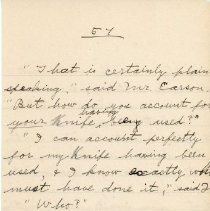 57
"That is certainly plain
speaking," said Mr. Carson.
"But how do you account for
having
your Knife, being used?"
"I can account perfectly
for my Knife having been
used, & I know exactly who
must have done it," said I
"Who?"